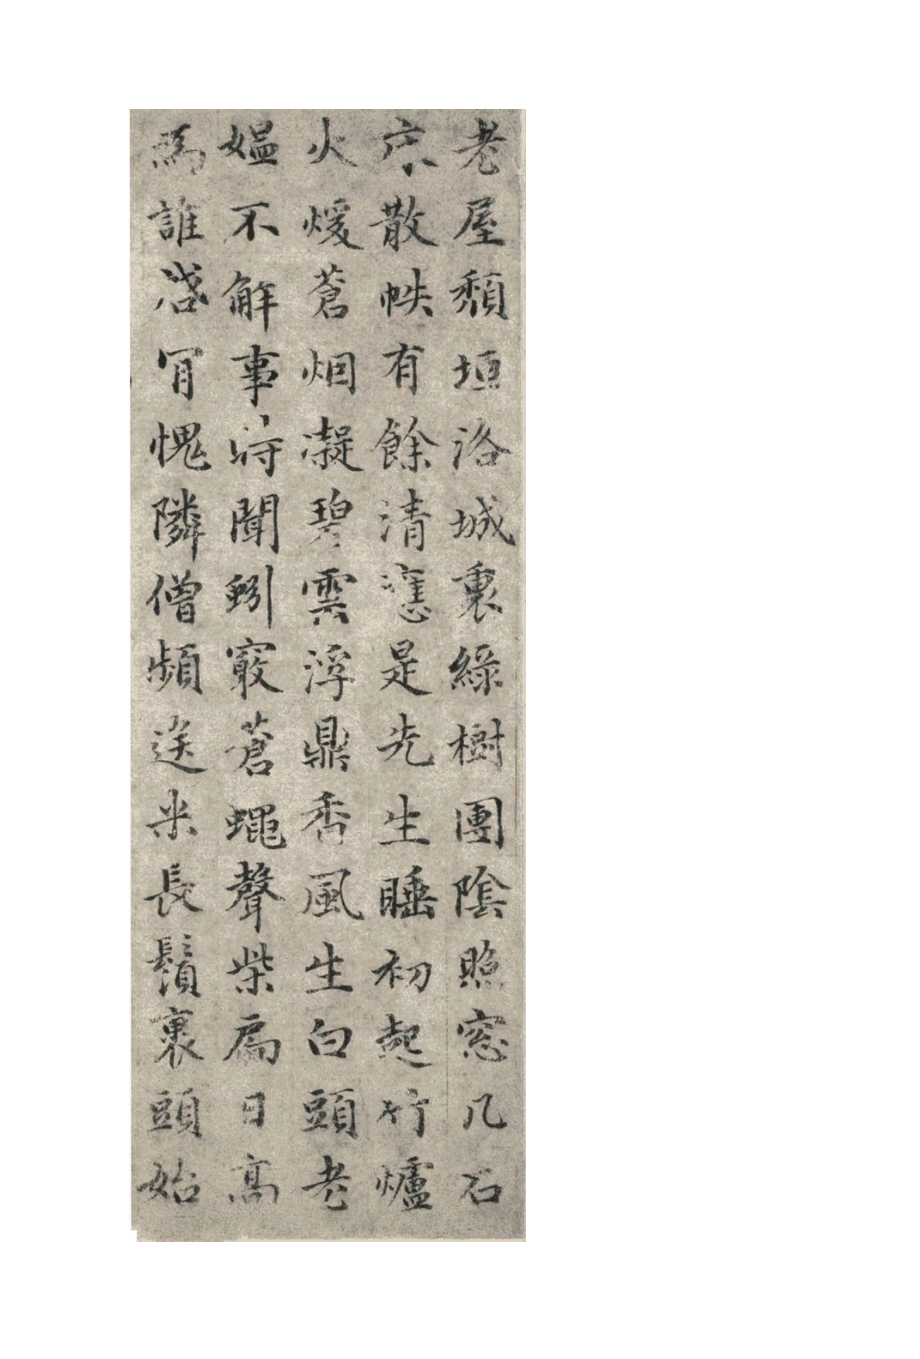 老屋頽垣洛城裏綠樹團陰照窓几石
床散帙有餘清應是先生睡初起竹爐
火煖蒼烟凝碧雲浮鼎香風生白頭老
媼不解事時聞蚓竅蒼蠅聲柴扃日高
為誰啓肎愧隣僧頻送米長鬚裹頭始